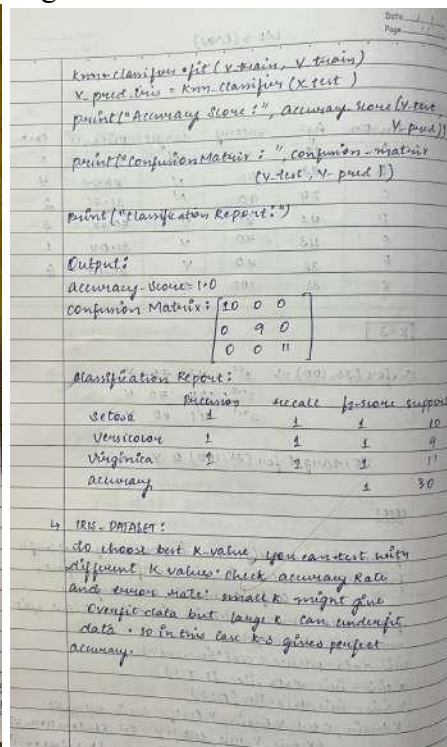 Date
Page
knn-classifier.fit (x-train, y-train)
y-pred-iris = knn-classifier (x test)
print("Accuracy Score:", accuracy score (y-test
y-pred))
print("Confusion Matrix:", confusion-matrix
(y-test, y-pred))
print("Classification Report:")
Output:
accuracy-score=1.0
confusion Matrix: [10 0 0
0 9 0
0 0 11]
Classification Report:
Precision recall f1-score support
Setosa 1 1 1 10
Versicolor 1 1 1 9
Virginica 1 1 1 11
accuracy 1 30
↳ IRIS-DATASET:
do choose best K-value, you can test with
different K values. Check accuracy Rate
and error rate. small k might give
Overfit data but large k can underfit
data. so in this case k=3 gives perfect
accuracy.